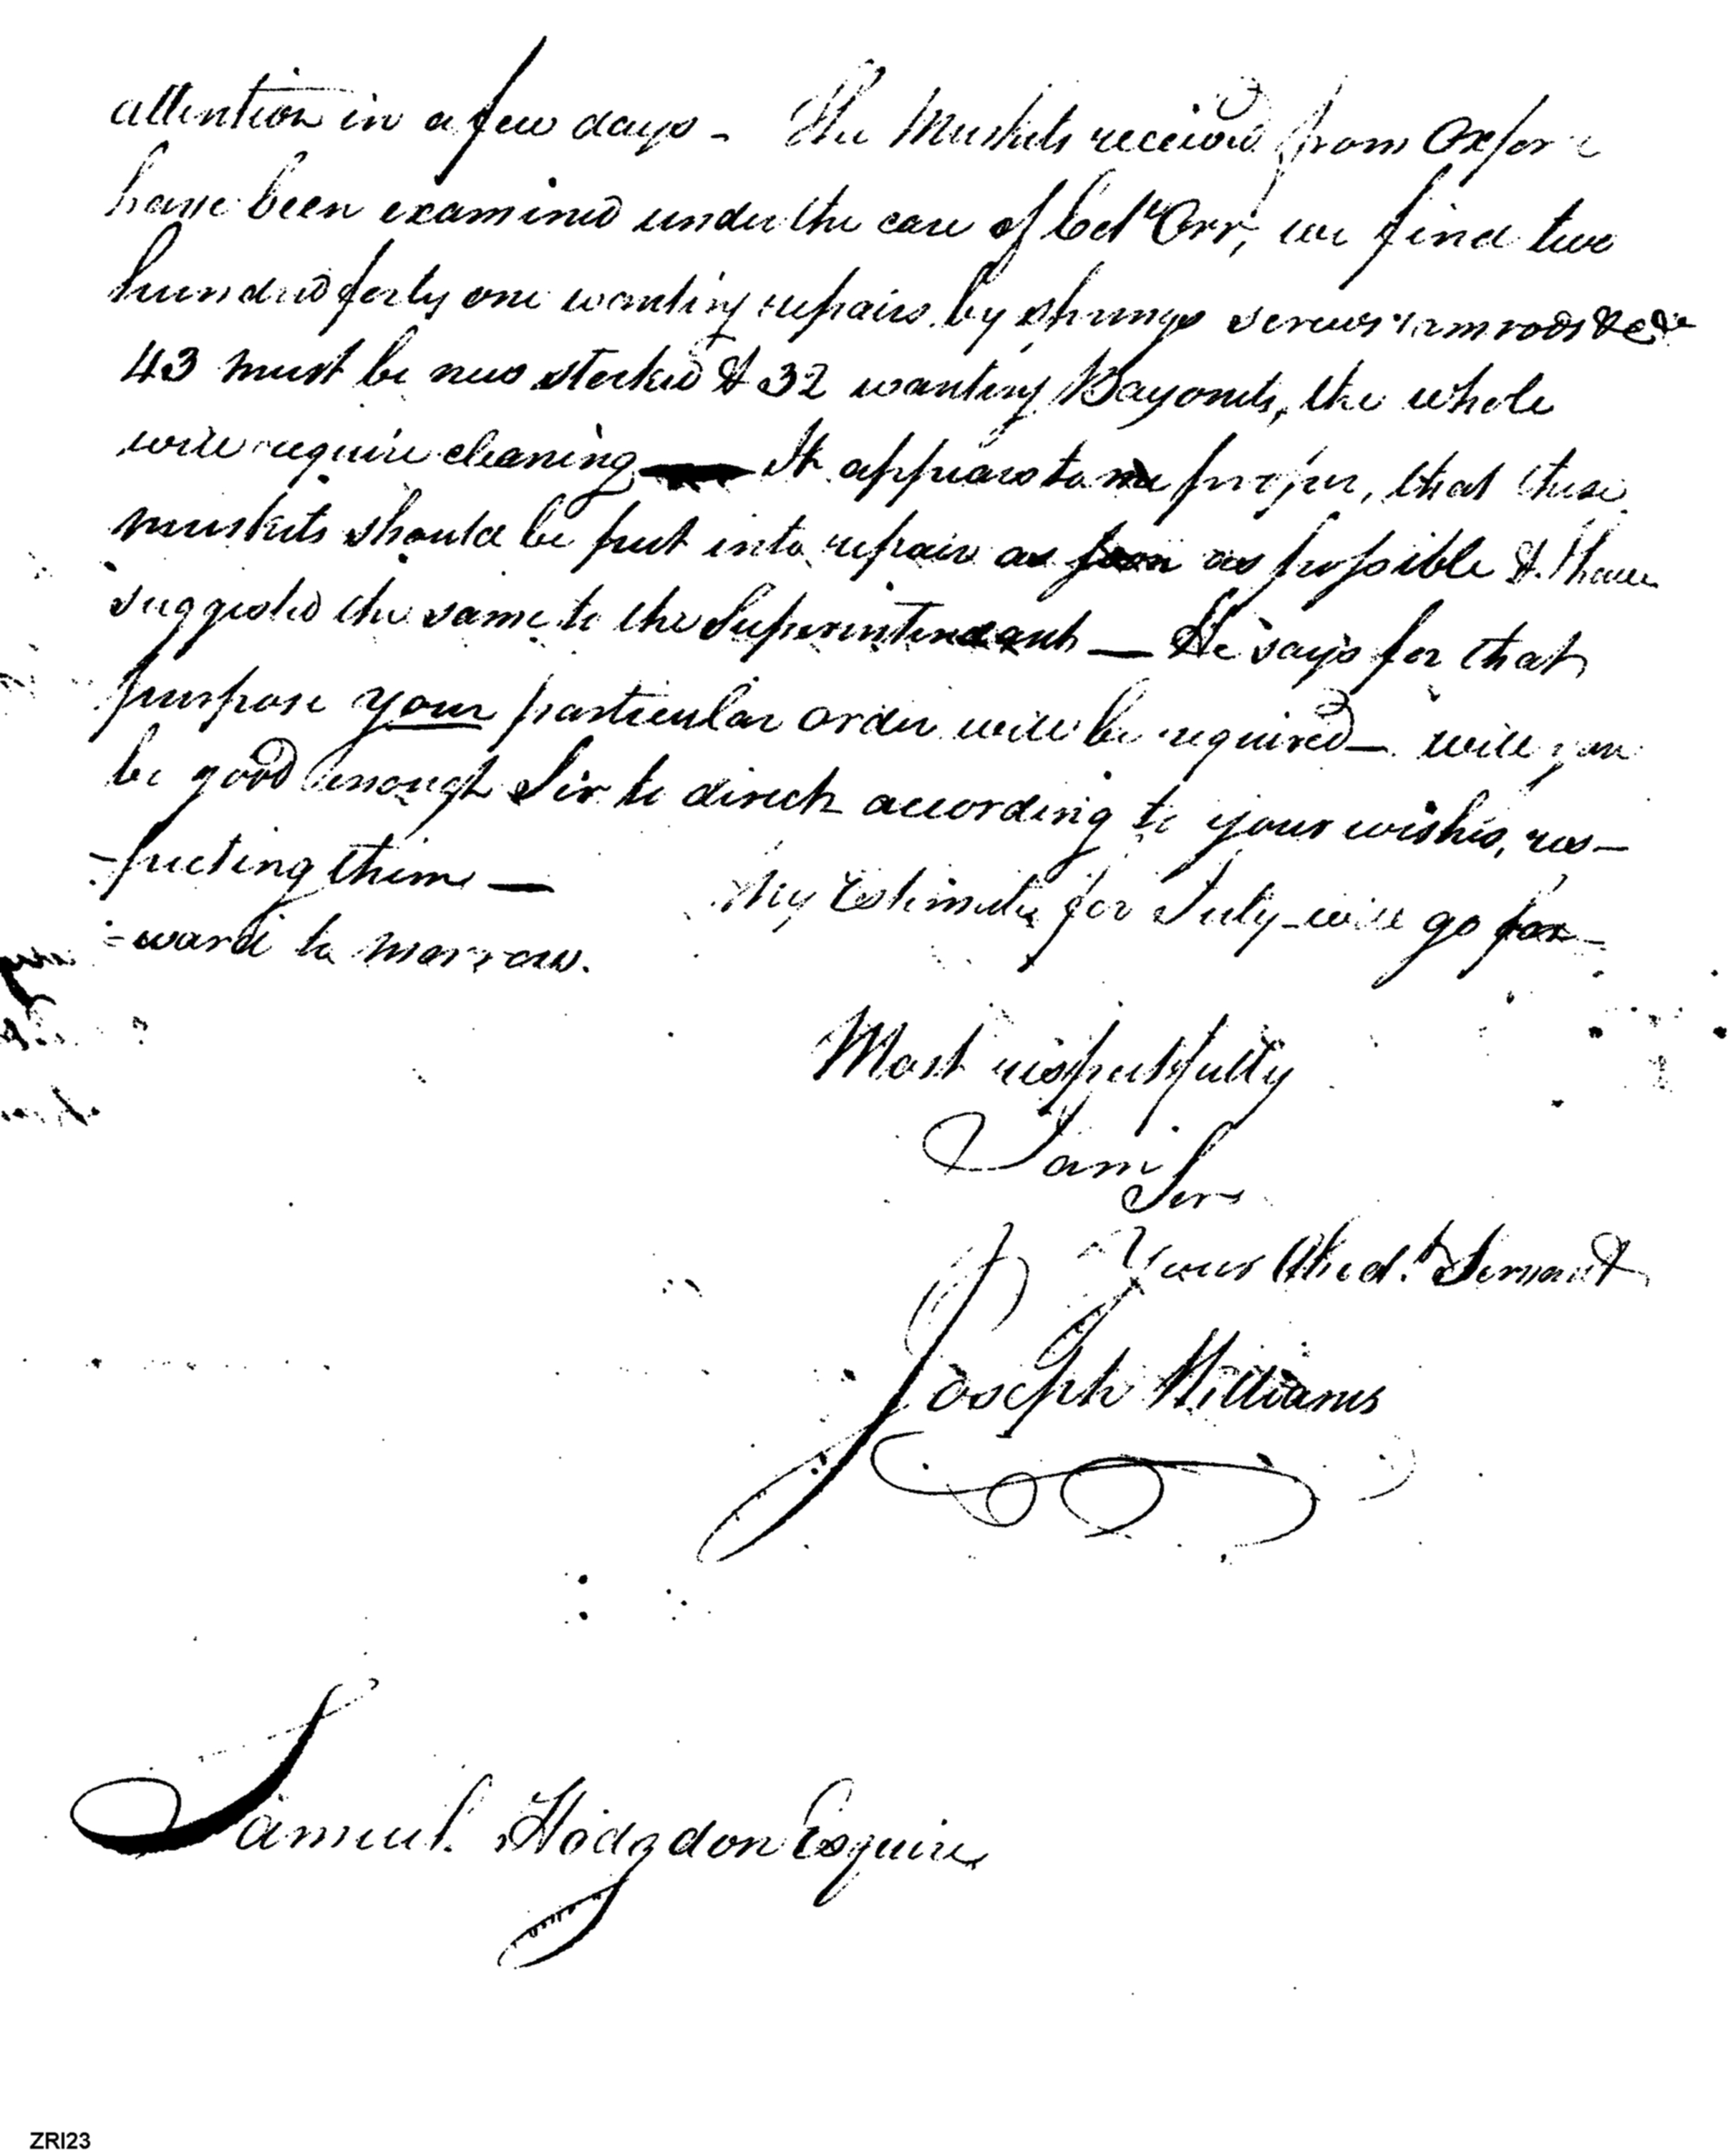 attention in a few days – The Muskets received from Oxford
have been examined under the care of Colº Orr, we find two
hundred forty one wanting repairs by springs screws ramrods &c &c
43 must be new stocked & 32 wanting Bayonets, the whole
will require cleaning — It appears to me proper, that these
muskets should be put into repair as soon as possible & I have
suggested the same to the Superintendant — He says for that
purpose your particular order will be required — will you
be good enough Sir to direct according to your wishes, res–
–pecting them — My Estimate for July will go for–
=ward to morrow.
Most respectfully
I am
Sir
Your Obedt. Servant
Joseph Williams
Samuel Hodgdon Esquire
ZRI23